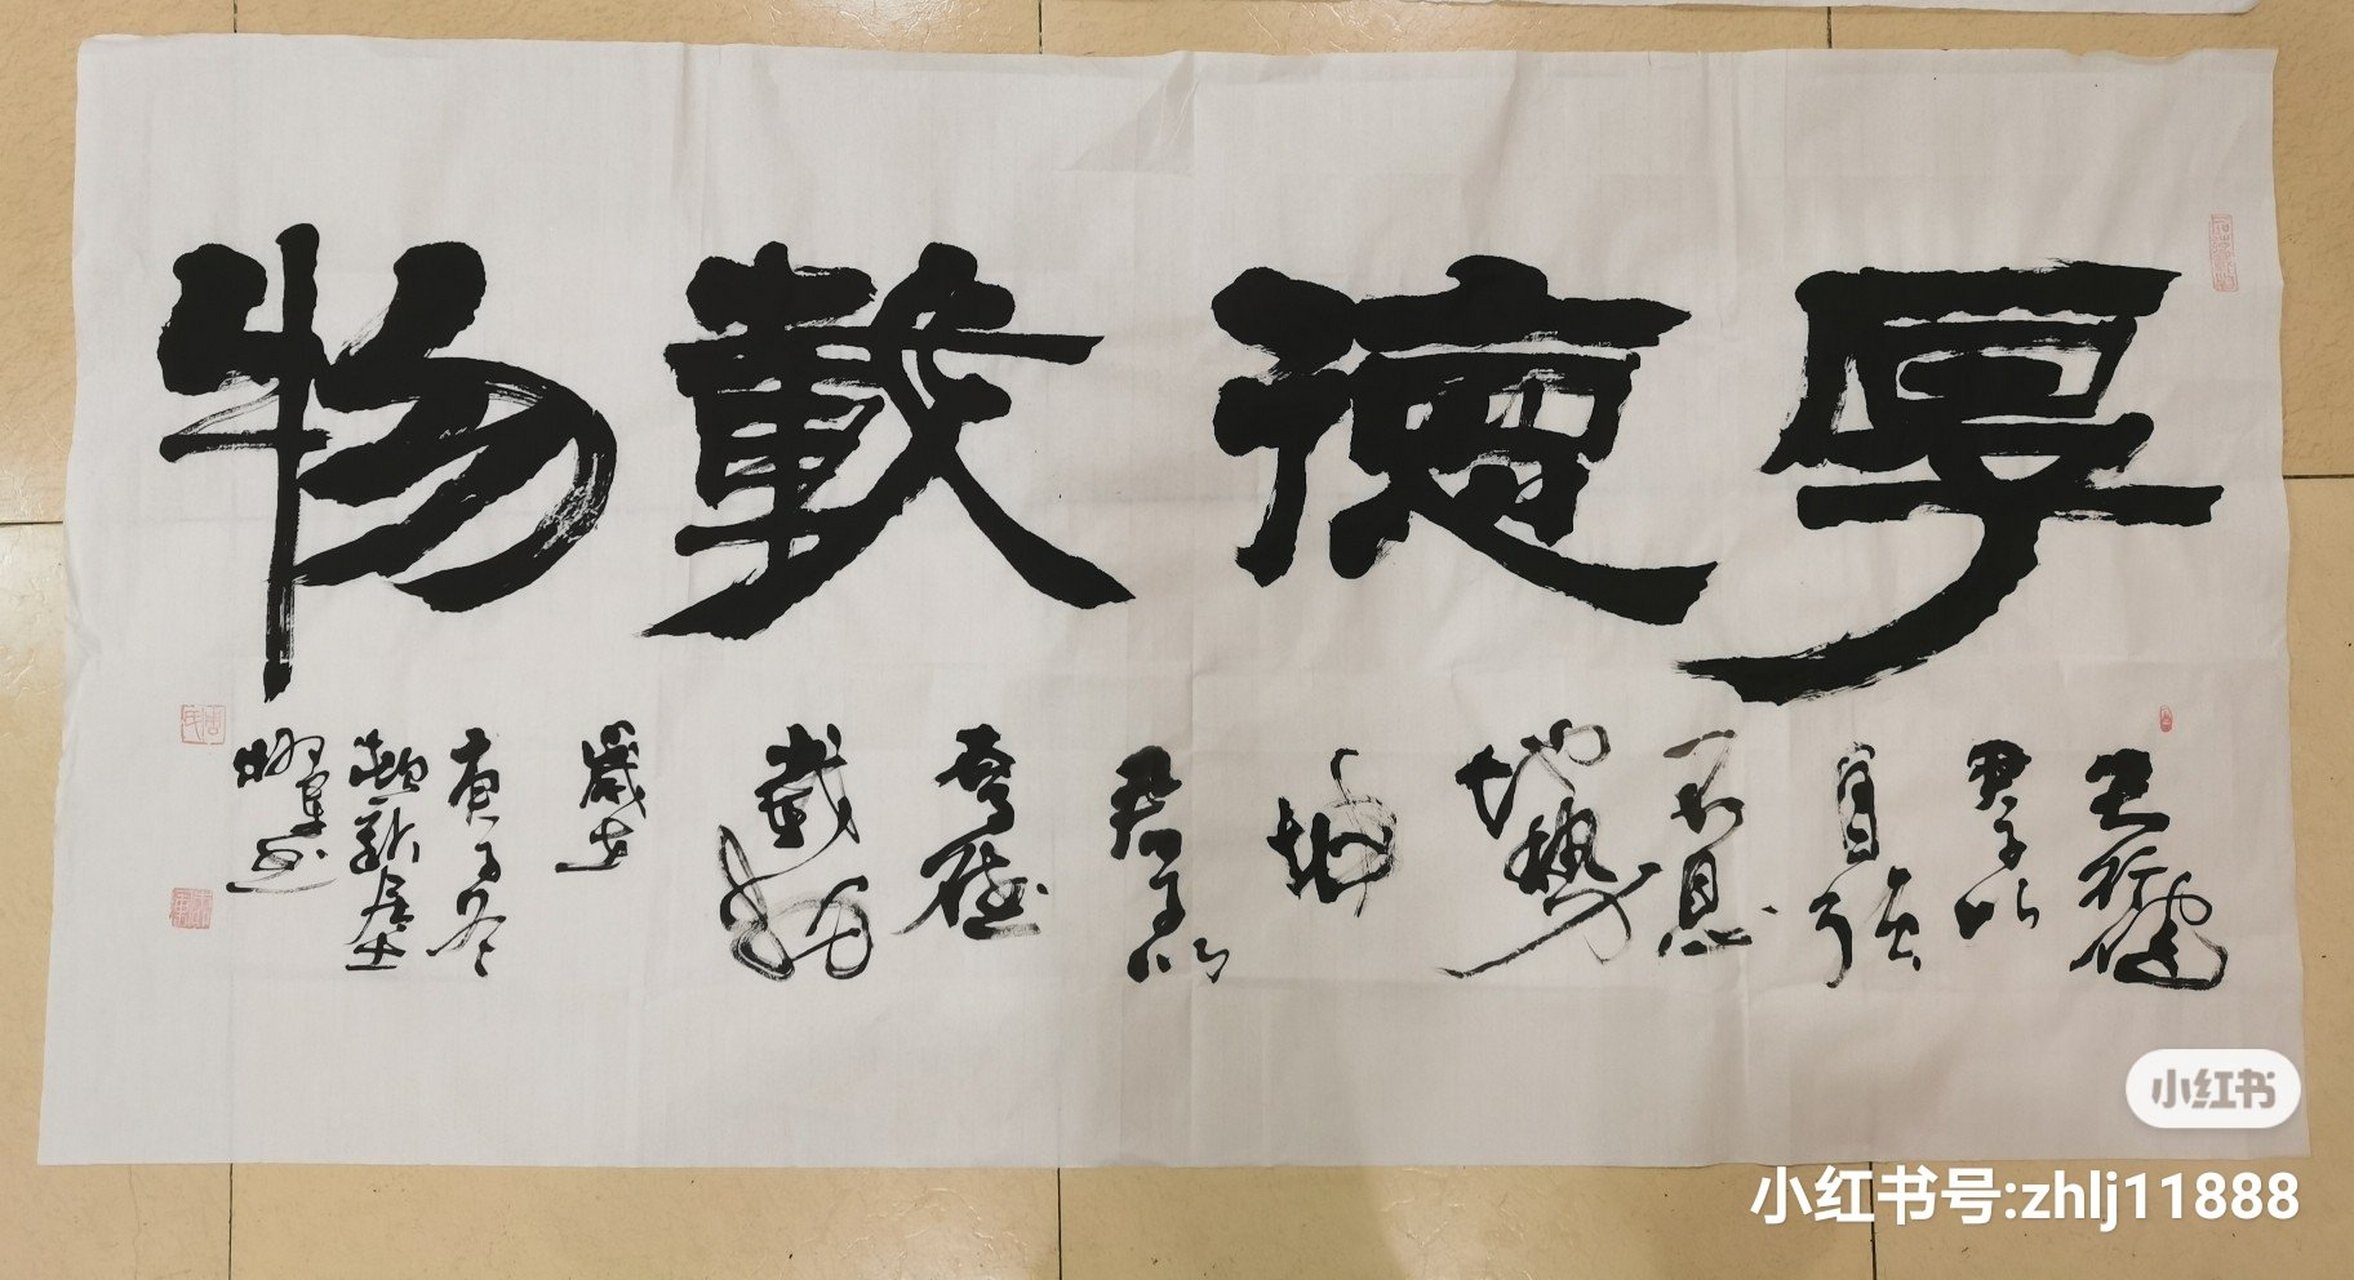 厚德載物
天行健
君子以
自强
不息
地勢
坤
君子以
厚德
載物
歲在
庚子冬
小红书
小红书号:zhlj11888